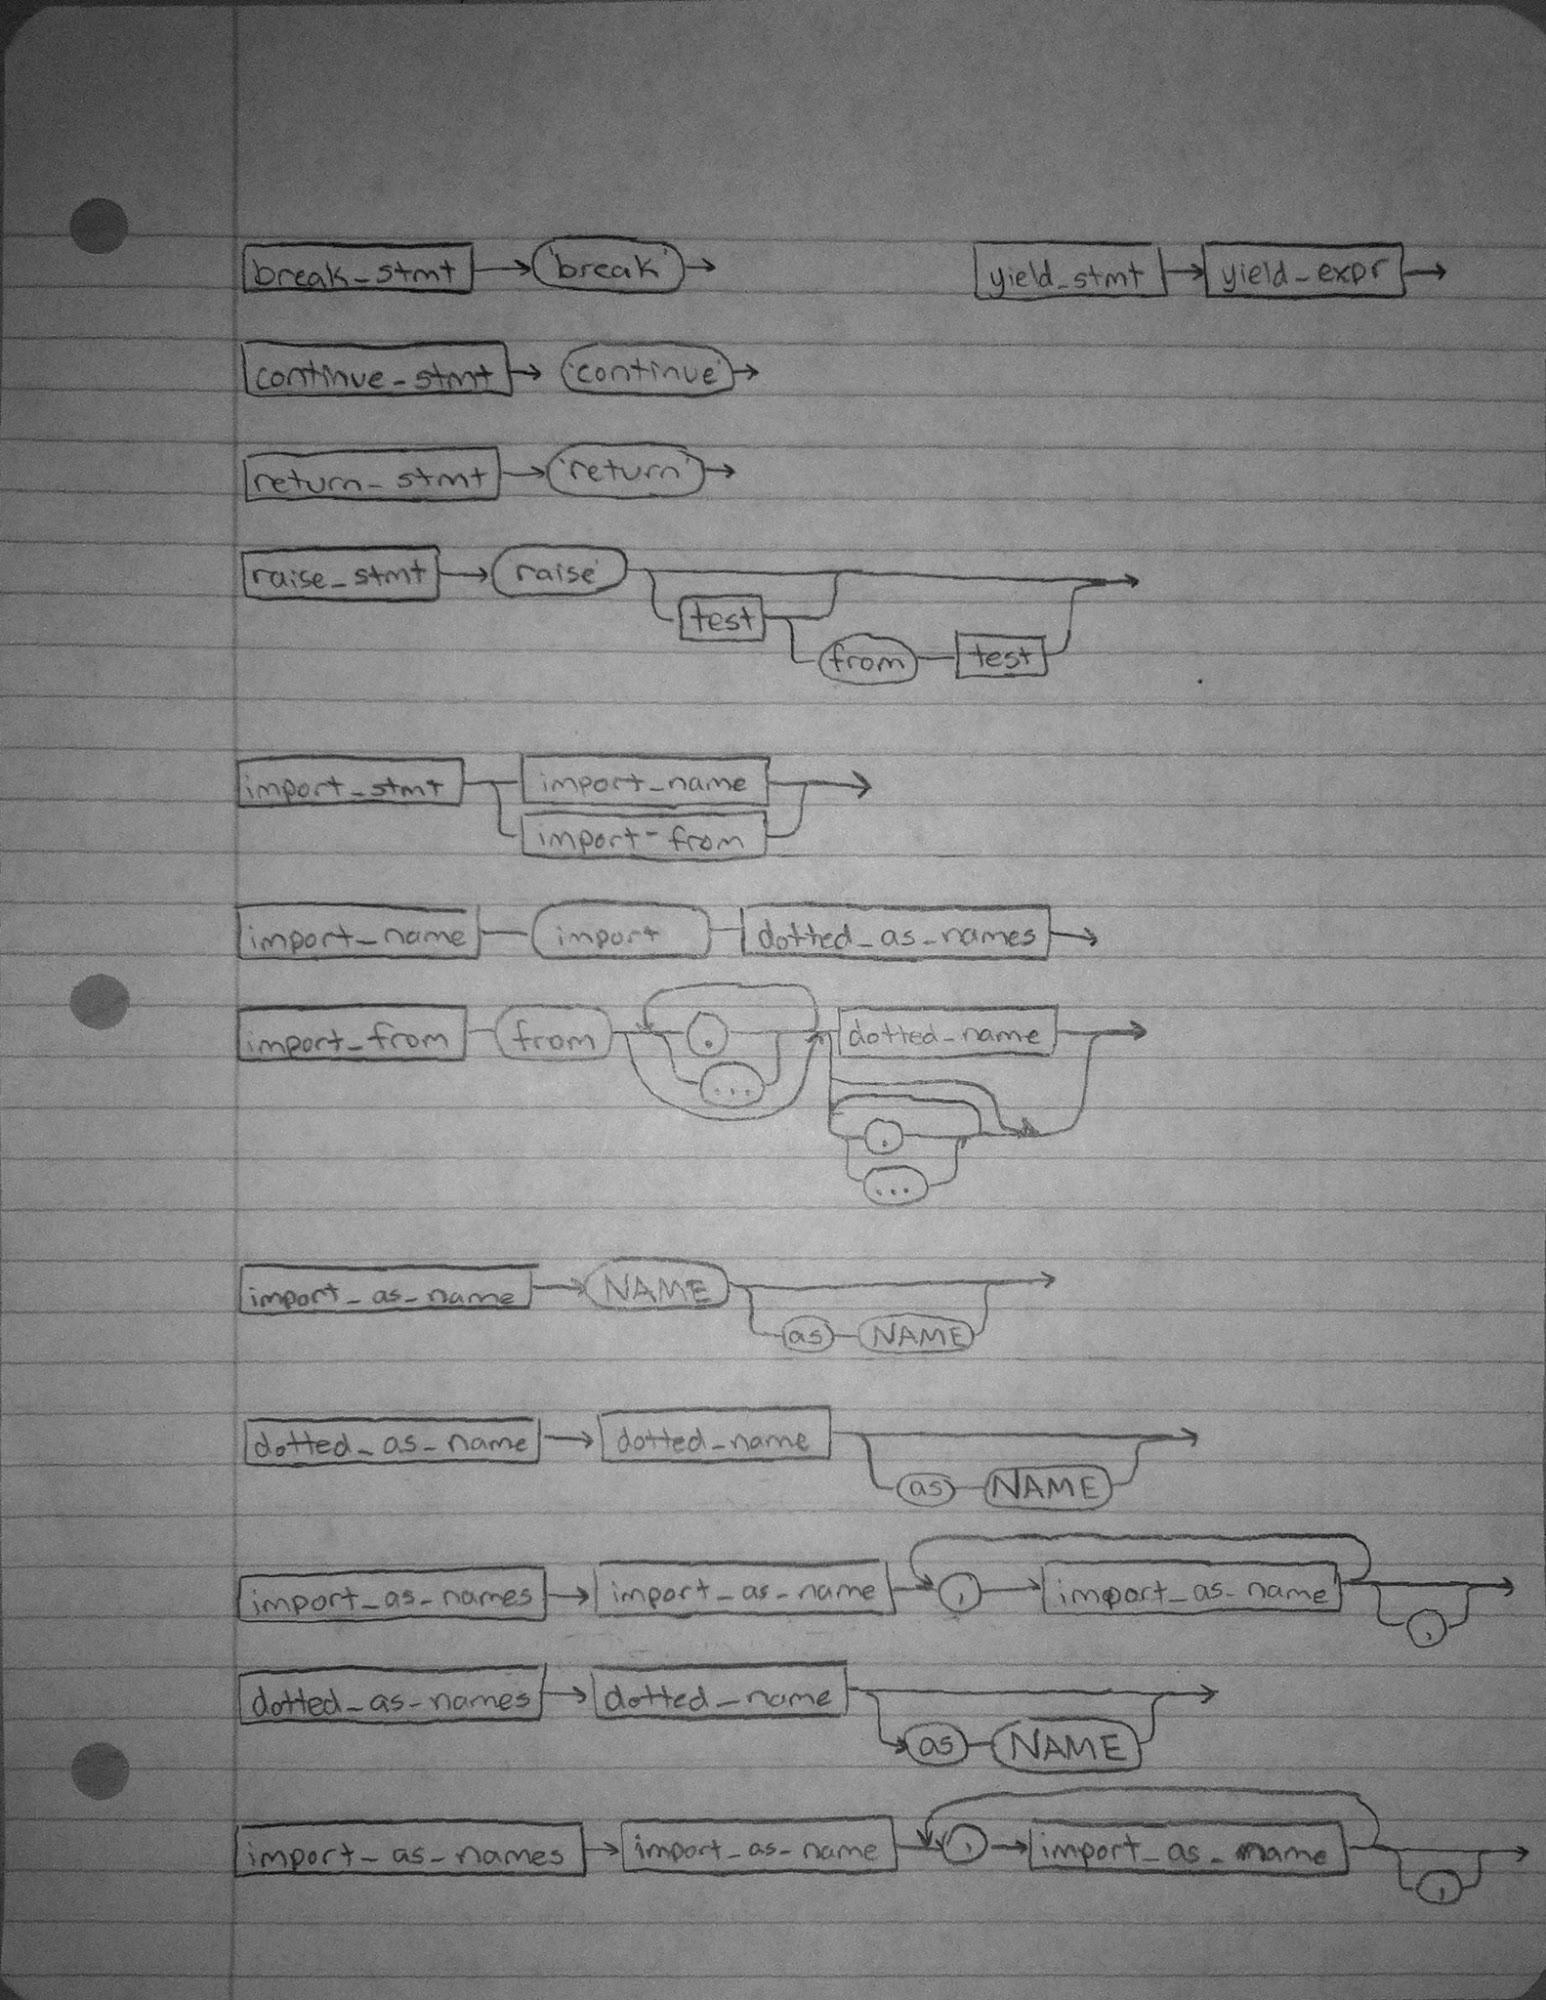 break_stmt 'break' yield_stmt yield_expr
continue_stmt 'continue'
return_stmt 'return'
raise_stmt raise'
test
from test
import_stmt import_name
import-from
import_name import dotted_as_names
import_from from . dotted_name
...
.
...
import_as_name NAME
as NAME
dotted_as_name dotted_name
as NAME
import_as_names import_as_name , import_as_name
,
dotted_as_names dotted_name
as NAME
import_as_names import_as_name , import_as_name
,